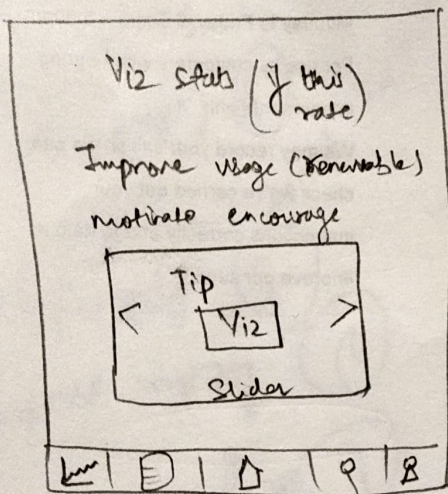 Viz Stats (if this
rate)
Improve usage (renewable)
motivate encourage
Tip
Viz
Slider